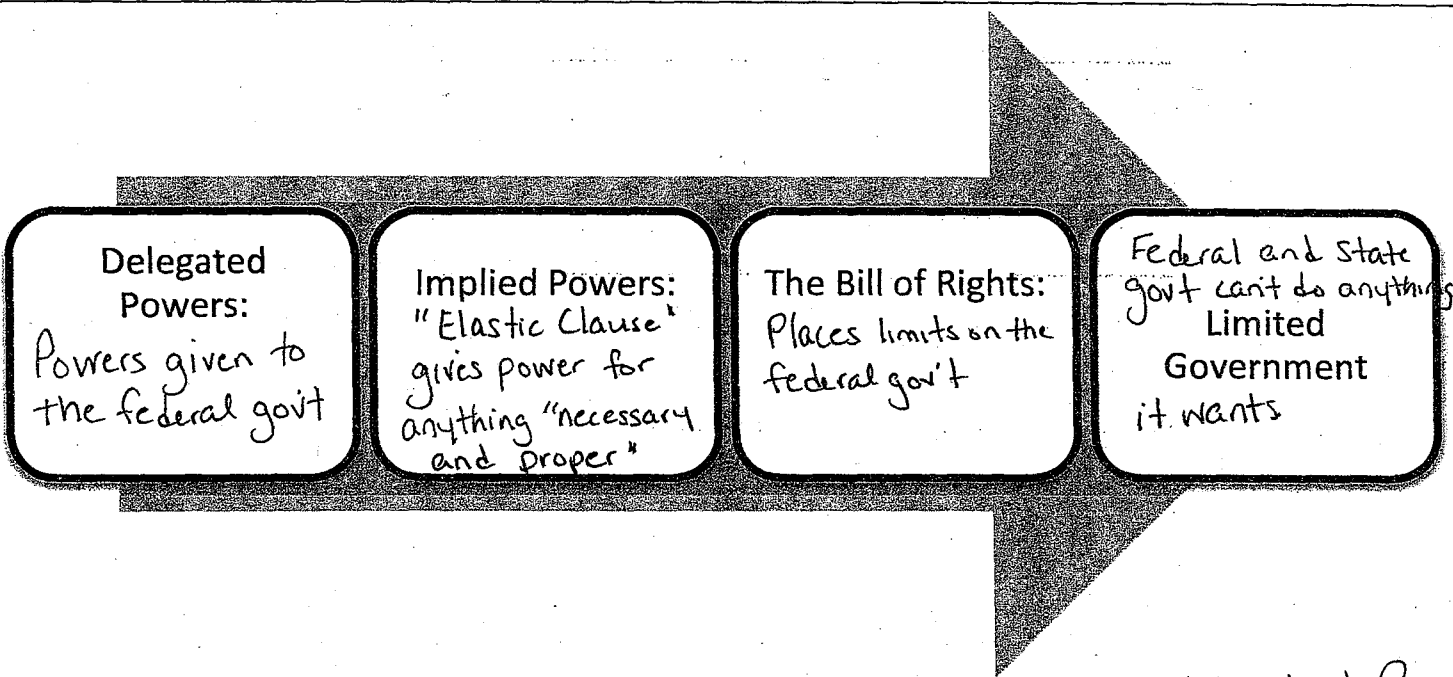 Delegated
Powers:
Powers given to
the federal gov't
Implied Powers:
"Elastic Clause"
gives power for
anything "necessary
and proper"
The Bill of Rights:
Places limits on the
federal gov't
Federal and State
gov't can't do anything
Limited
Government
it wants